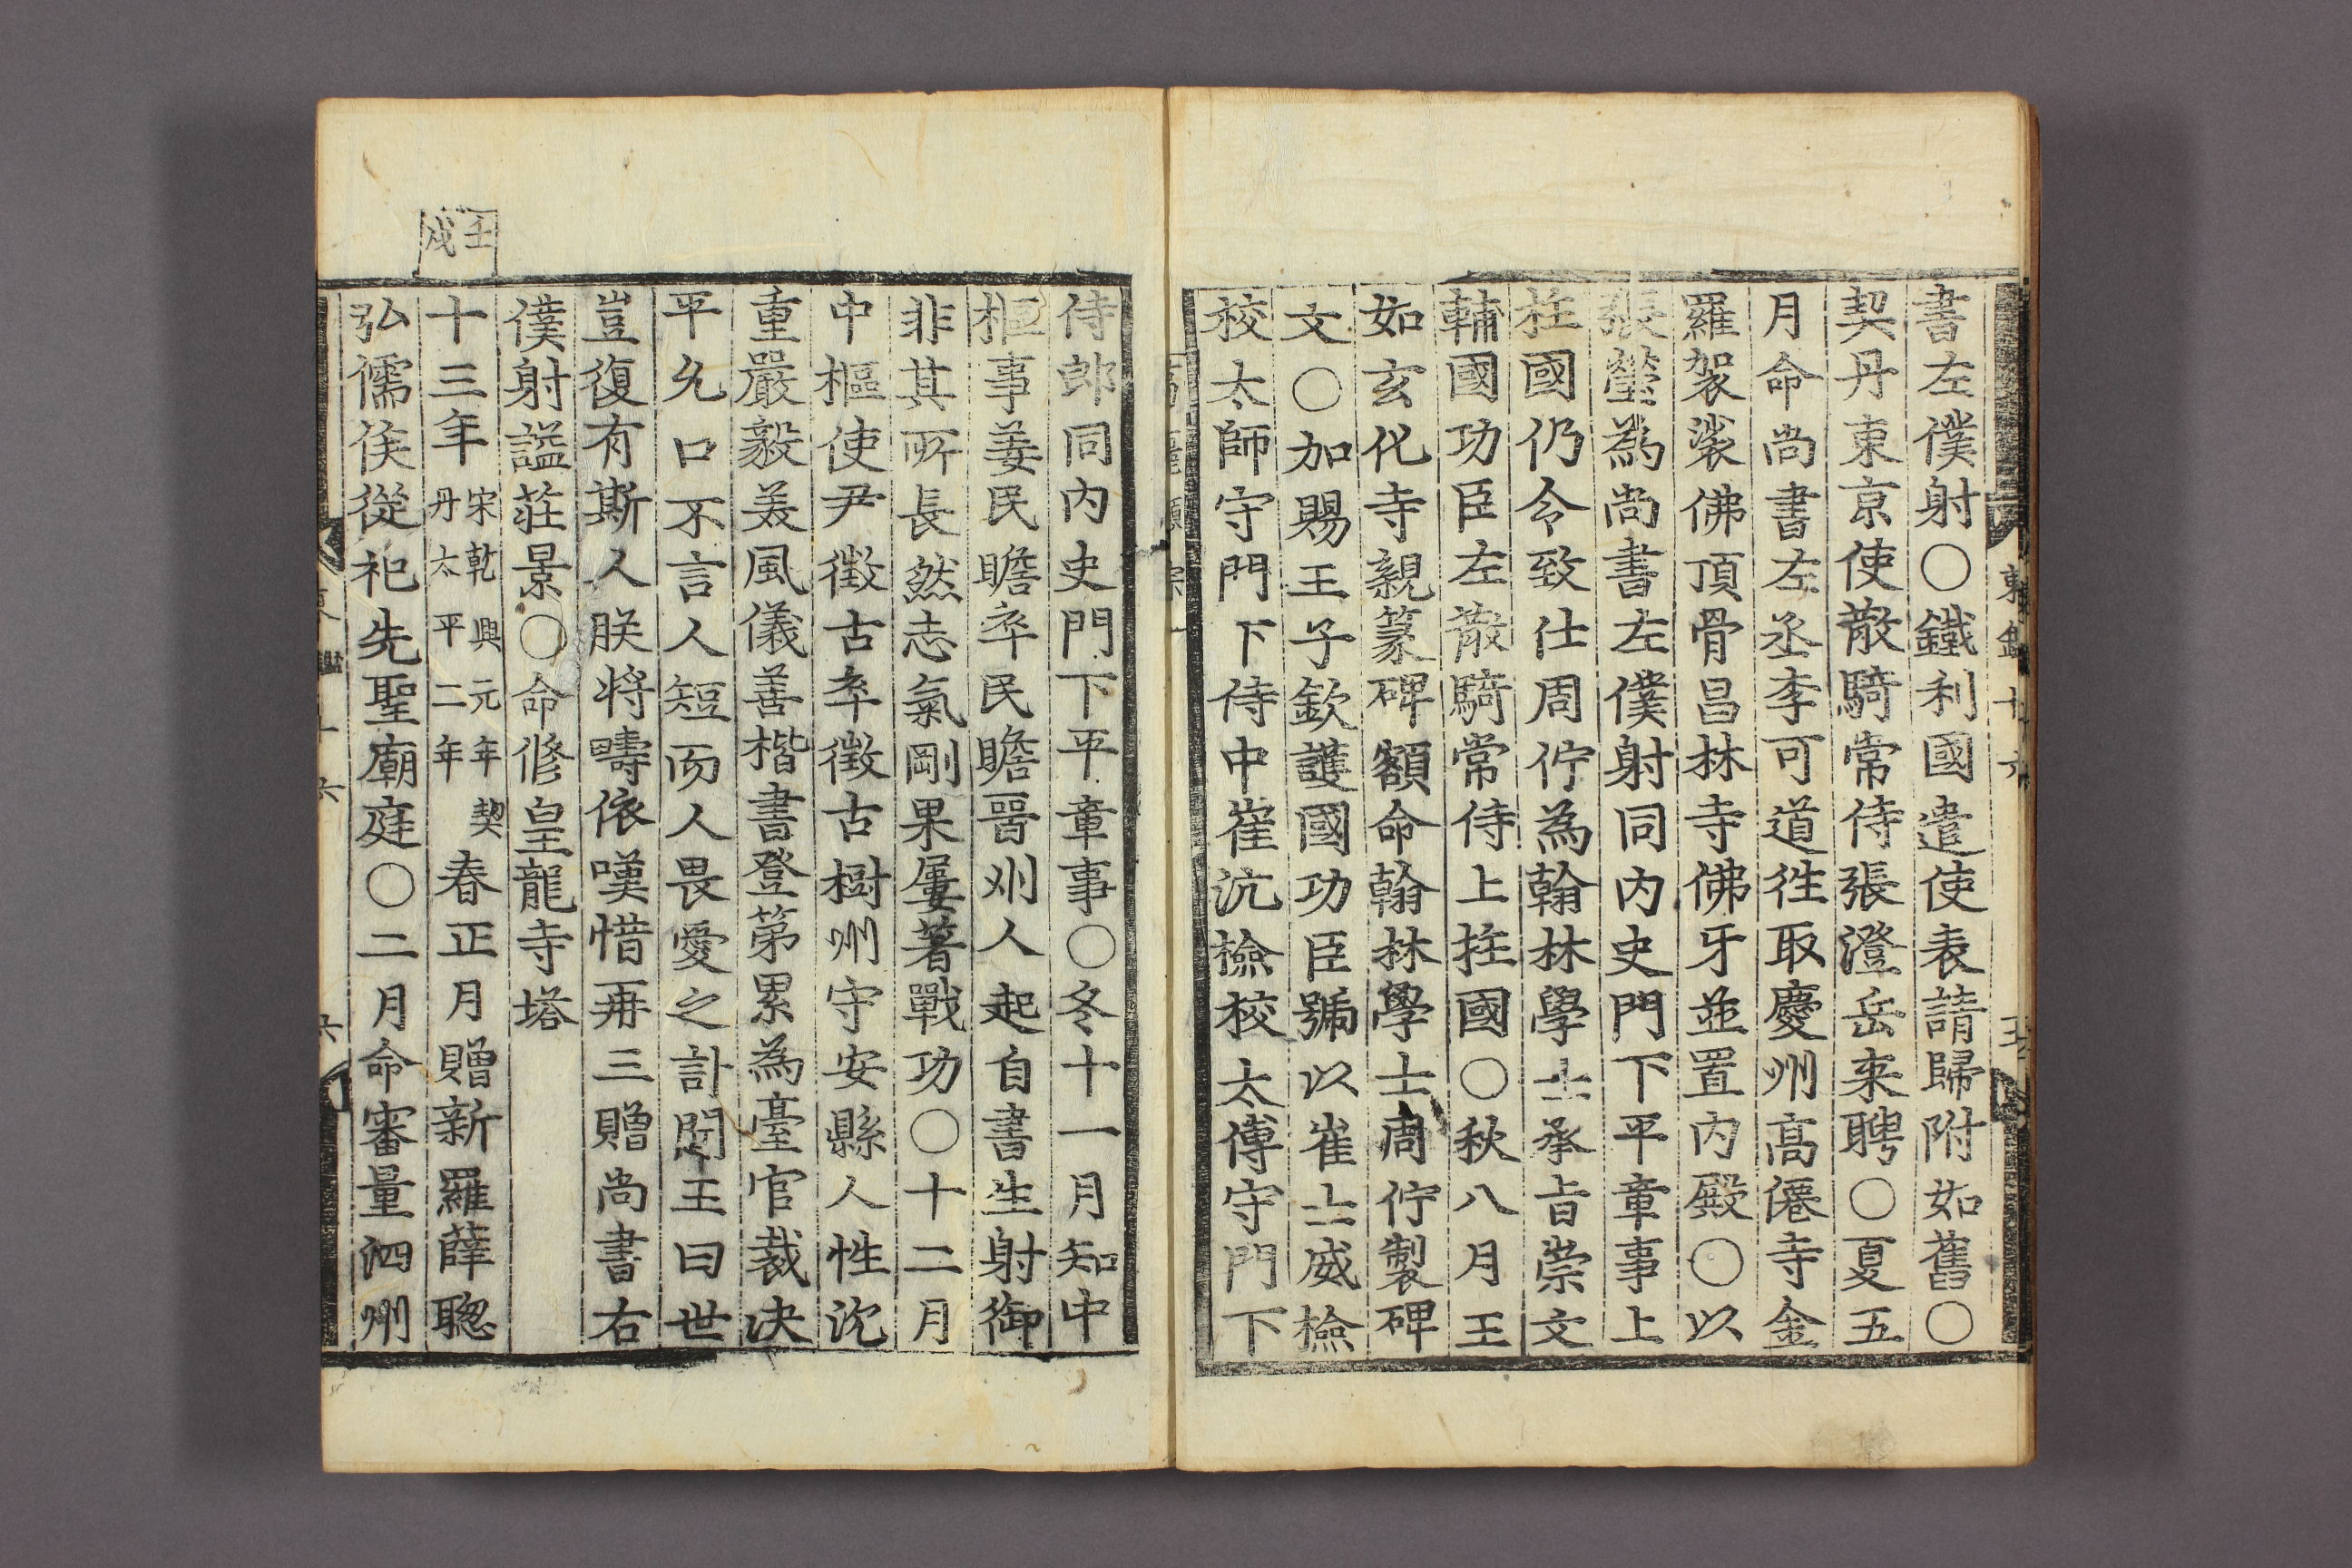 書左僕射〇鐵利國遣使表請歸附如舊〇
契丹東京使散騎常侍張澄岳来聘〇夏五
月命尚書左丞李可道徃取慶州高僊寺金
羅袈裟佛頂骨昌林寺佛牙並置內殿〇以
張瑩為尚書左僕射同內史門下平章事上
柱國仍令致仕周佇為翰林學士承旨崇文
輔國功臣左散騎常侍上柱國〇秋八月王
如玄化寺親篆碑額命翰林學士周佇製碑
文〇加賜王子欽護國功臣號以崔士威檢
校太師守門下侍中崔沆檢校太傅守門下
侍郎同內史門下平章事〇冬十一月知中
樞事姜民瞻卒民瞻晉州人起自書生射御
非其所長然志氣剛果屢著戰功〇十二月
中樞使尹徵古卒徵古樹州守安縣人性沈
重嚴毅美風儀善楷書登第累為臺官裁決
平允口不言人短而人畏愛之訃聞王曰世
豈復有斯人朕將疇依嘆惜再三贈尚書右
僕射謚莊景〇命修皇龍寺塔
壬戌
十三年宋乾興元年契丹太平二年春正月贈新羅薛聰
弘儒侯從祀先聖廟庭〇二月命審量泗州